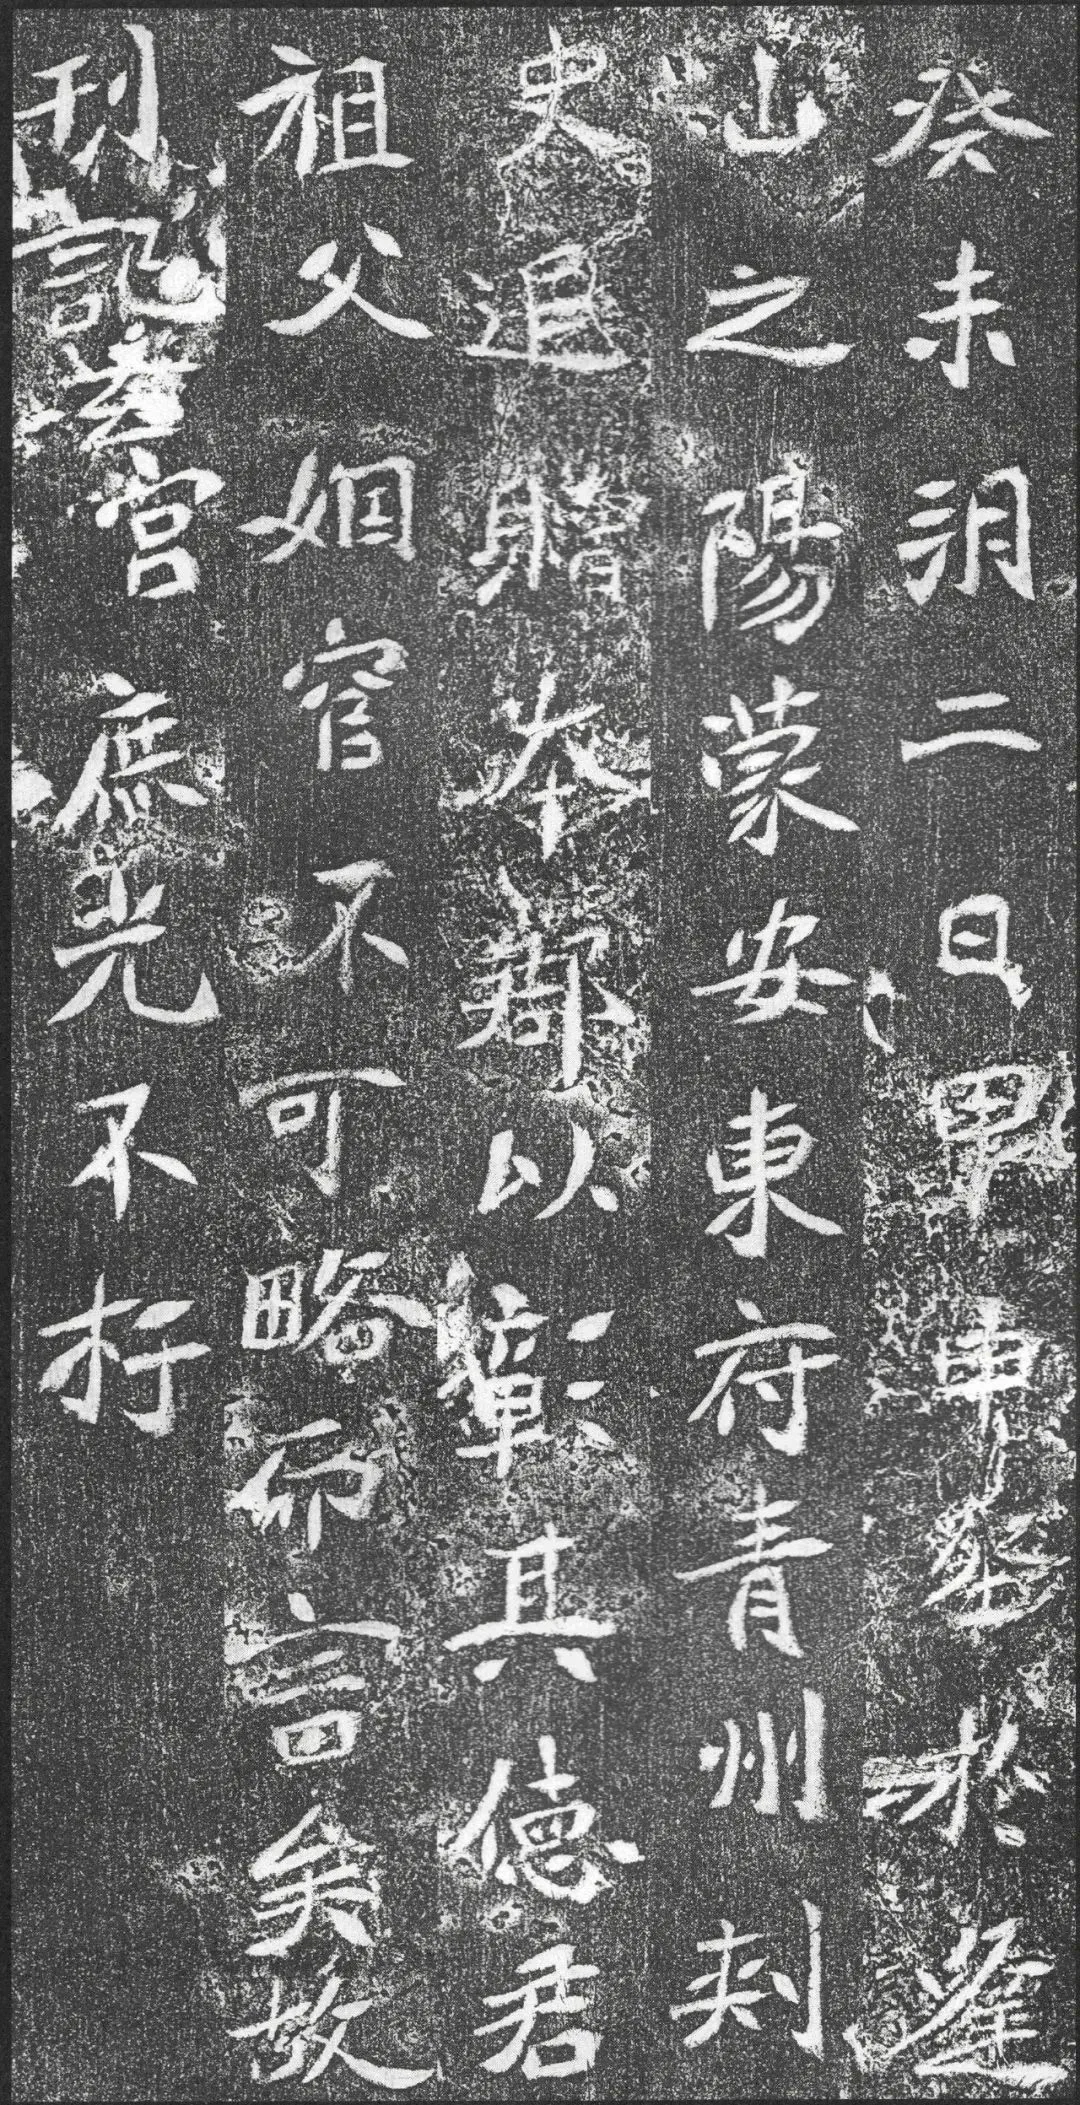 癸未朔二日甲申塟於蓬
山之陽蒙安東府青州刾
史追贈本郡以彰其德君
祖父姻官不可略而言矣故
刊記宫庶光不朽